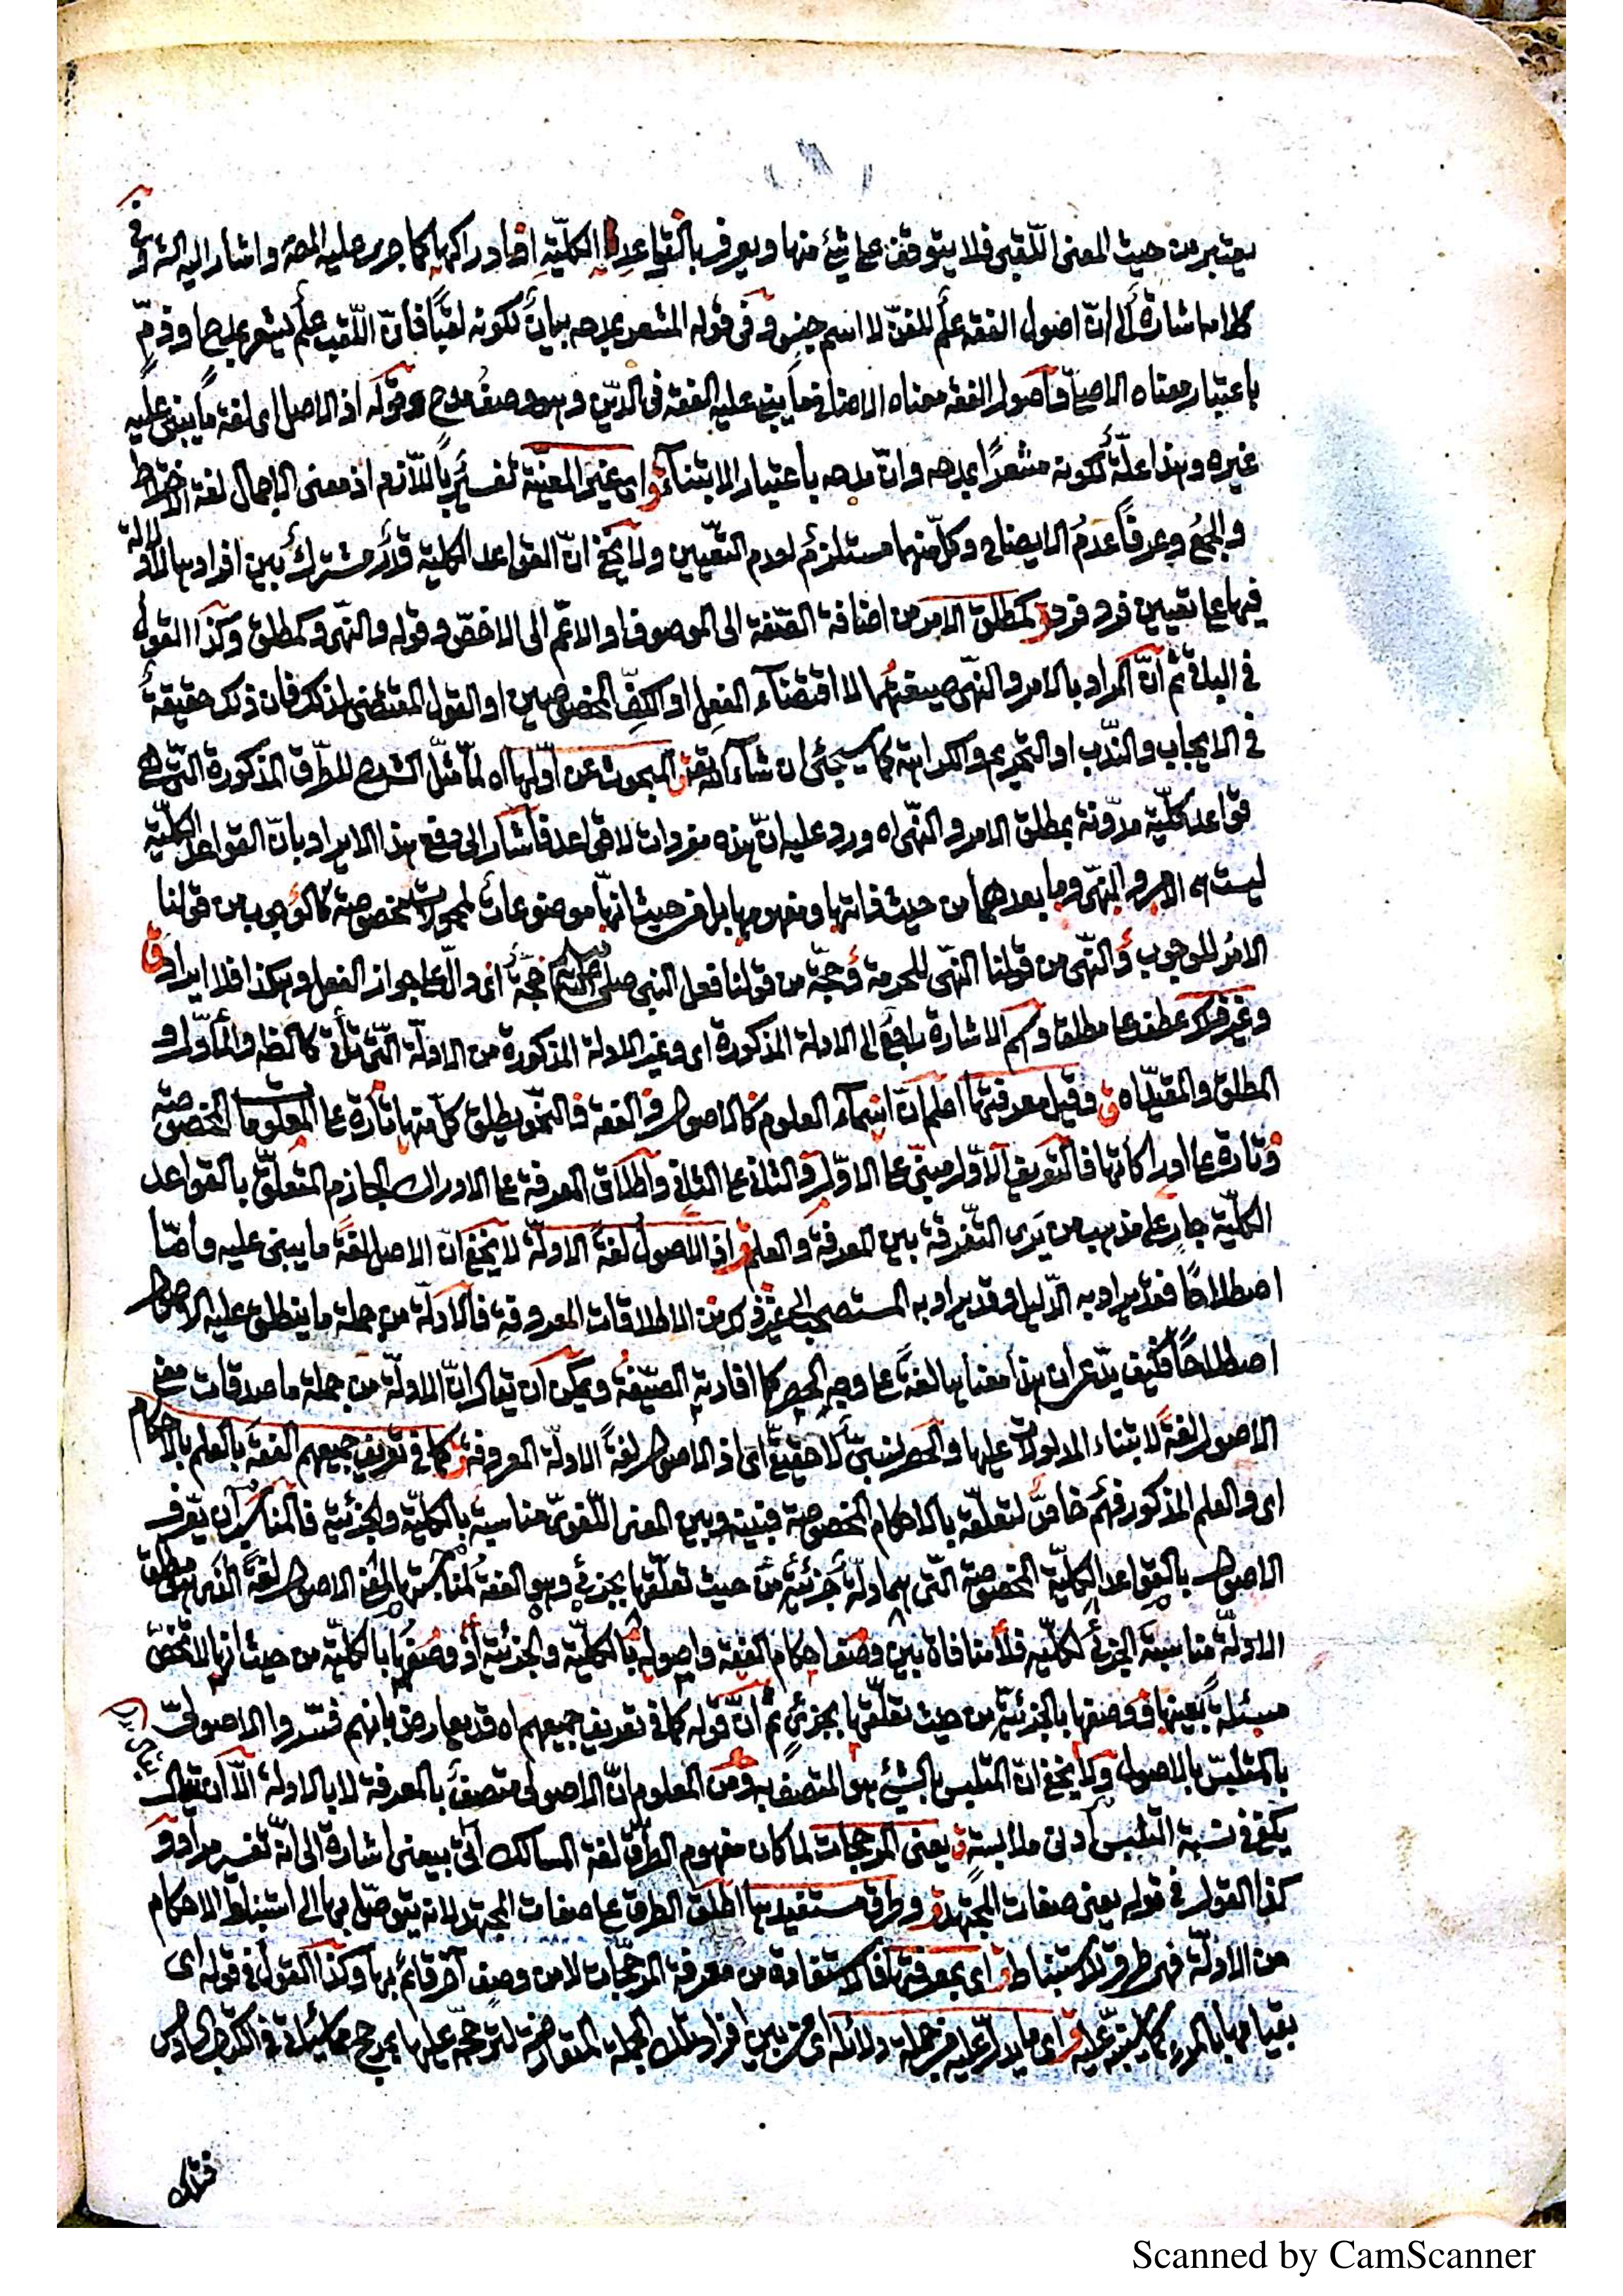 يعتبر من حيث المعنى اللّقبى فلا يتوقف على شئ منها ويعرف بالقواعد الكليّة او ادراكها كما جرى عليه المصـ واشار اليه الشـ وفى
كلامه اشارة الى انّ اصول الفقه علم للفنّ لا اسم جنس وفى قوله المشعر بمدحه بيان لكونه لقبًا فانّ اللّقب علم يشعر بمدح او ذمّ
باعتبار معناه الاصلى واصول الفقه معناه الاضافى ما يبنى عليه الفقه فى الدّين وهو وصف مدح وقوله اذ الاصل اى لغة ما يبنى عليه
غيره وهذا علّة لكونه مشعرًا بمدحه وانّ مدحه باعتبار الابتناء ق اى غير المعيّنة تفسير باللّازم اذ معنى الاجمال لغة الاختلاط
والجمع وعرفًا عدم الايضاح وكلّ منهما مستلزم لعدم التعيين ولا يخفى انّ القواعد الكلية قدر مشترك بين افرادها لا دلالة
فيها على تعيين فرد فرد ق كمطلق الامر من اضافة الصّفة الى الموصوف او الاعمّ الى الاخصّ وقوله والنّهى وكمطلق وكذا القول
فى البواقى ثم انّ المراد بالامر والنّهى صيغتهما لا اقتضاء الفعل او الكفّ المخصوصين او القول المقتضى لذلك فان ذلك حقيقة
فى الايجاب والنّدب او التحريم والكراهة كما سيجئ ان شاء اللّه تعـ ق المبحوث عن اوّلها اه لمّا مثّل الشـ للطّرق المذكورة الّتى هى
قواعد كلّية مدوّنة بمطلق الامر والنّهى اه ورد عليه انّ هذه مفردات لا قواعد فاشار الى دفع هذا الايراد بانّ القواعد الكلّية
ليست هى الامر والنّهى وما بعدهما من حيث ذاتها ومفهومها بل من حيث انّها موضوعات لمحمولات مخصوصة كالوجوب من قولنا
الامر للوجوب والنّهى من قولنا النّهى للحرمة وحجّة من قولنا فعل النبى صلى اللّه عليه حجة اى دالّ على جواز الفعل وهكذا فلا ايراد ق
وغير ذلك عطف على مطلق واسم الاشارة راجع الى الادلة المذكورة اى وغير الادلة المذكورة من الادلّة الّتى تأتى كالظاهر والمأوّل و
المطلق والمقيّد اه ق وقيل معرفتها اعلم انّ اسماء العلوم كالاصول والفقه والنّحو يطلق كلّ منها تارة على المعلومات المخصوصة
وتارة على ادراكاتها فالتعريف الاوّل مبنىّ على الاوّل والثانى على الثانى واطلاق المعرفة على الادراك الجازم المتعلّق بالقواعد
الكليّة جار على مذهب من يرى التّفرقة بين المعرفة والعلم ق اذ الاصول لغة الادلّة لا يخفى انّ الاصل لغة ما يبنى عليه وامّا
اصطلاحًا فقد يراد به الدّليل وقد يراد به المستصحب الى غير ذلك من الاطلاقات المعروفة فالادلّة من جملة ما ينطلق عليه الاصول
اصطلاحًا فكيف يدّعى ان هذا معناها لغة على وجه الحصر كما افادته الصّيغة ويمكن ان يقال انّ الادلّة من جملة ما صدقات معنى
الاصول لغة لابتناء المدلولات عليها والحصر نسبىّ لا حقيقىّ اى اذ الاصول لغة الادلّة المعروفة ق كما فى تعريف جميعهم الفقه بالعلم بالاحكام
اى والعلم المذكور فهم خاصّ لتعلّقه بالاحكام المخصوصة فبينه وبين المعنى اللّغوىّ مناسبة بالكليّة والجزئية فالمناسب ان يعرف
الاصول بالقواعد الكليّة المخصوصة الّتى هى ادلّة جزئية من حيث تعلّقها بجزئى وهو الفقه لمناسبتها لمعنى الاصول لغة الذى هو مطلق
الادلّة مناسبة الجزئى لكليّه فلا منافاة بين وصف احكام الفقه واصوله بالكليّة والجزئية او وصفها بالكليّة من حيث انها لا تخصّ
مسئلة بعينها ووصفها بالجزئية من حيث تعلّقها بجزئى ثم انّ قوله كما فى تعريف جميعهم اه قد يعارض بانهم فسّروا الاصولىّ
بالمتلبّس بالاصول ولا يخفى انّ المتلبس بالشئ هو المتّصف به ومن المعلوم انّ الاصولى متصف بالمعرفة لا بالادلة الّا ان يقال
يكفى فى نسبة التلبس ادنى ملابسة ق يعنى المرجحات لما كان مفهوم الطّرق لغة المسالك اتى بيعنى اشارة الى انّه تفسير مراد و
كذا القول فى قوله يعنى صفات المجتهد ق وطرق مستفيدها اطلق الطرق على صفات المجتهد لانه يتوصّل بها الى استنباط الاحكام
من الادلّة فهى طرق للاستنباط ق اى بمعرفتها فالاستفادة من معرفة المرجّحات لا من وصف آخر قائم بها وكذا القول فى قوله اى
بقيامها بالمرء كما سينبّه عليه ق اى ما يدلّ عليه من جملة دلائله اى من بين افراد تلك الجملة المتعارضة لترجّحه عليها بمرجح مما سيأتى فى الكتاب السادس
فتلك